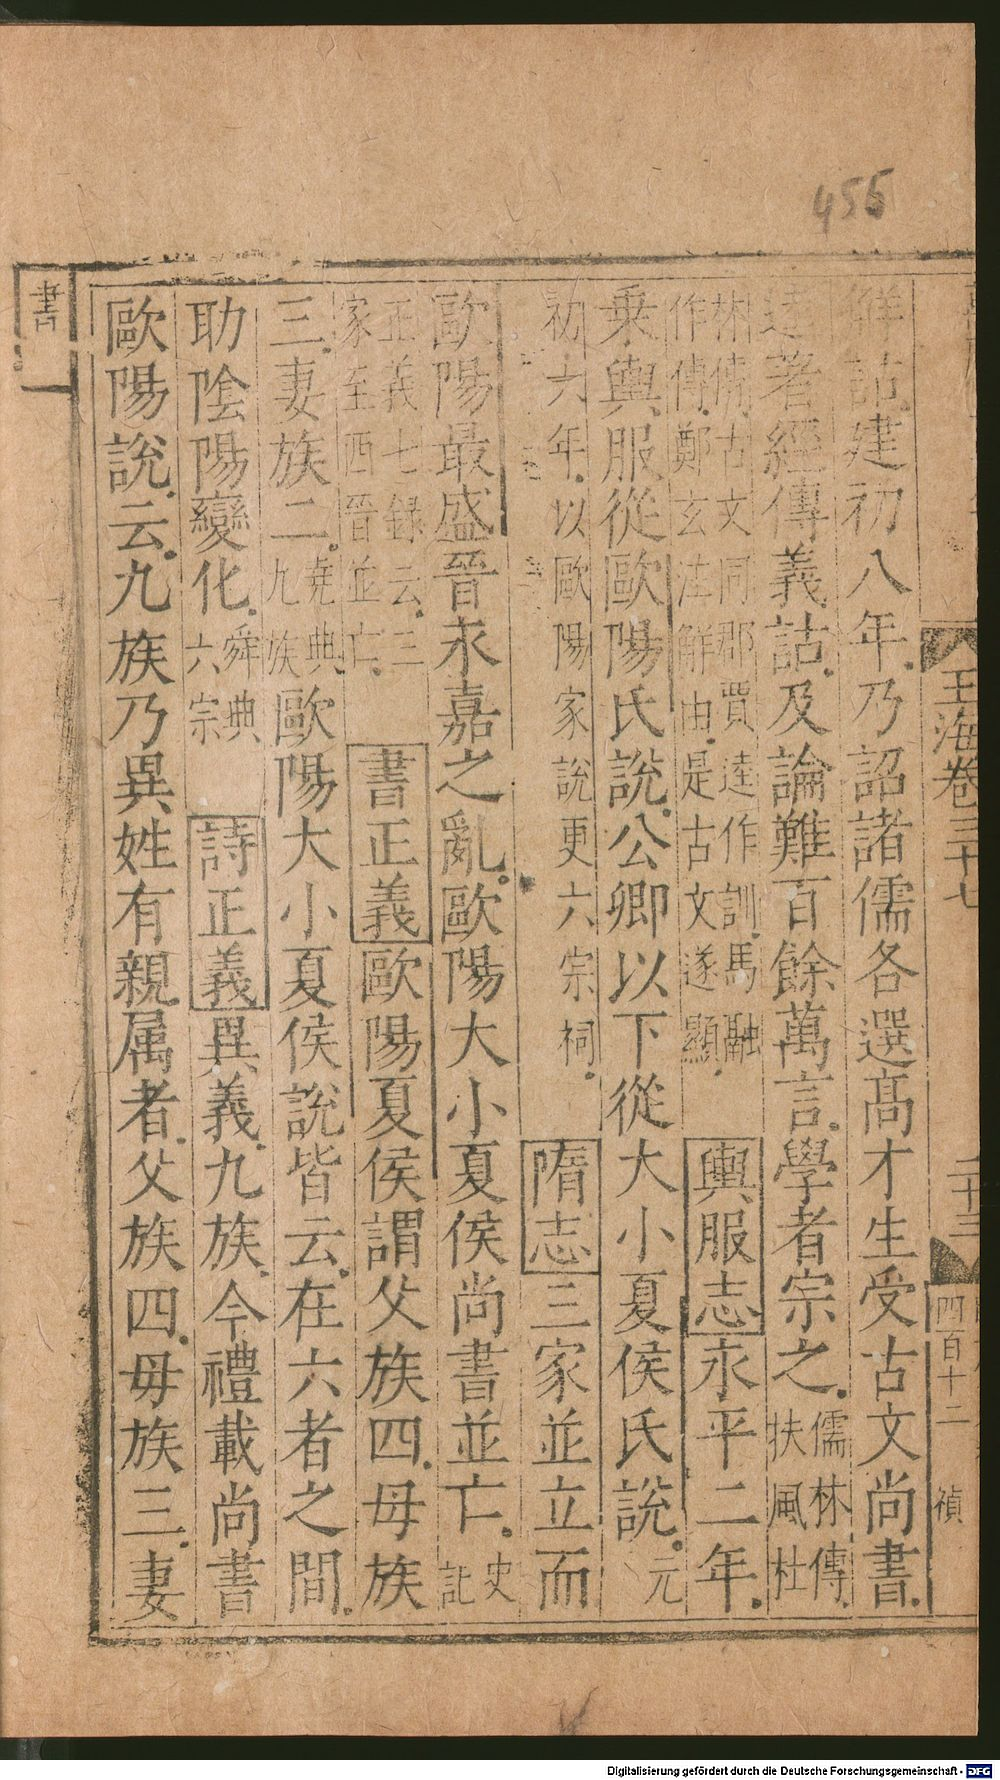 455
玉海卷三十七
二十三
四百十二
禎
詳詁建初八年乃詔諸儒各選髙才生受古文尚書
逵著經傳義詁及論難百餘萬言學者宗之儒林傳扶風杜
林傳古文同郡賈逵作訓馬融作傳鄭玄注解由是古文遂顯輿服志永平二年
乗輿服從歐陽氏說公卿以下從大小夏侯氏說元
初六年以歐陽家說更六宗祠隋志三家並立而
歐陽最盛晉永嘉之亂歐陽大小夏侯尚書並亡史記
正義七録云三家至西晉並亡書正義歐陽夏侯謂父族四母族
三妻族二堯典九族歐陽大小夏侯說皆云在六者之間
助陰陽變化舜典六宗詩正義異義九族今禮戴尚書
歐陽說云九族乃異姓有親属者父族四母族三妻
書一
Digitalisierung gefördert durch die Deutsche Forschungsgemeinschaft - DFG